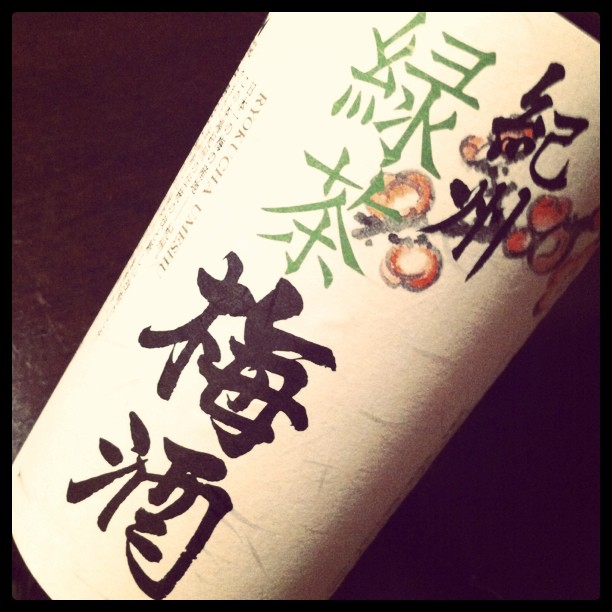 紀州
緑茶
梅酒
RYOKU CHA UMESHU